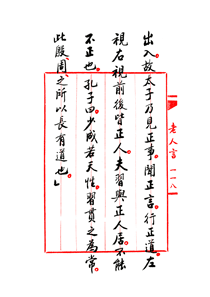 出入。故太子乃見正事。聞正言。行正道。左
視右視前後皆正人。夫習與正人居。不能
不正也。孔子曰少成若天性。習貫之為常。
此殷周之所以長有道也。」
老人言 一一八